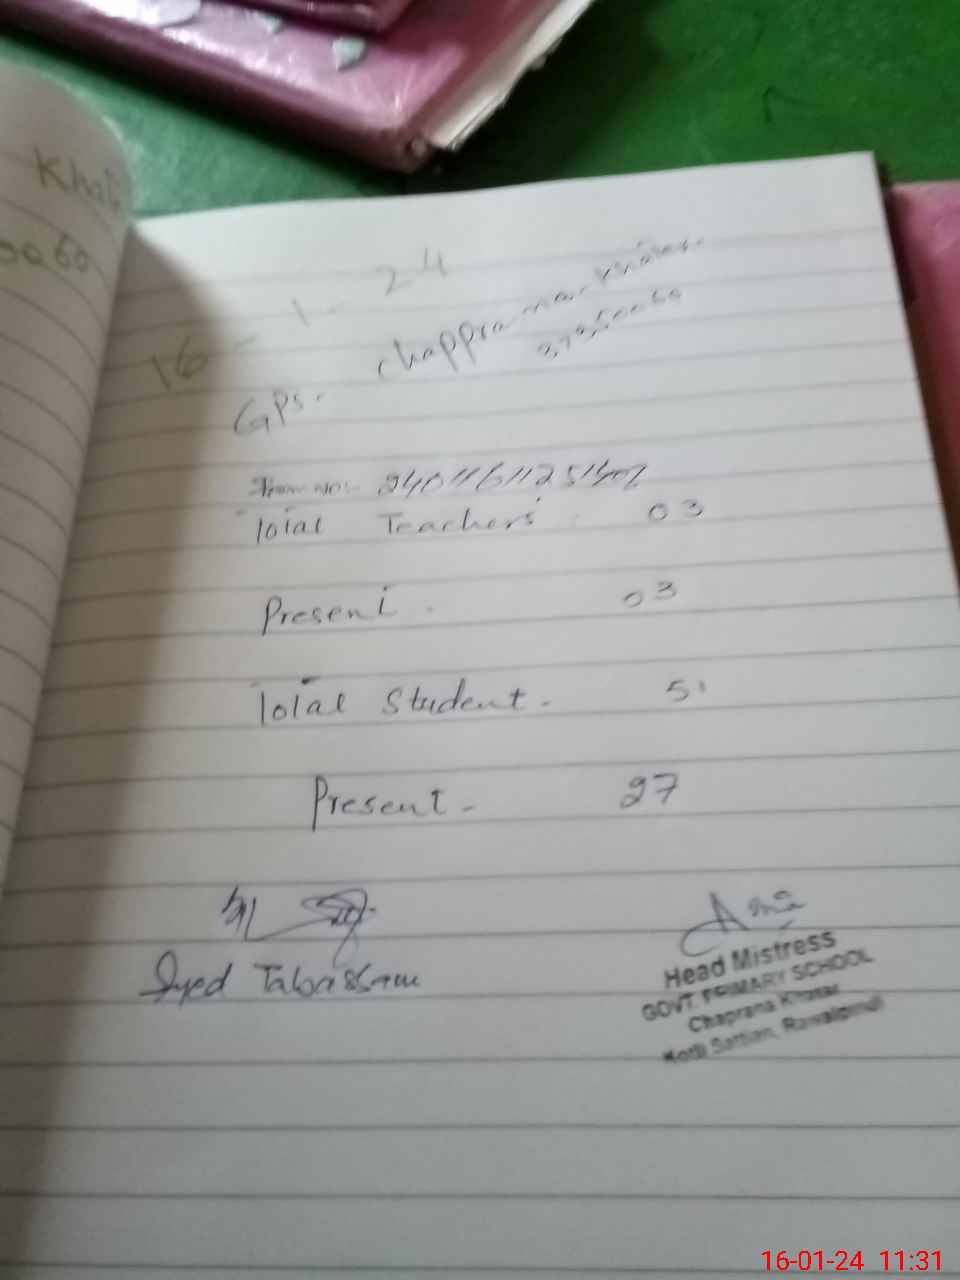 0060
16-1-24
GPS. Chapprana-Khatar
37350060
No:- 2401161125
Total Teachers. 03
Present. 03
Total Student. 51
Present - 27
Syed Tabassam
Head Mistress
GOVT. PRIMARY SCHOOL
Chaprana Khatar
Kotli Sattian, Rawalpindi
16-01-24 11:31